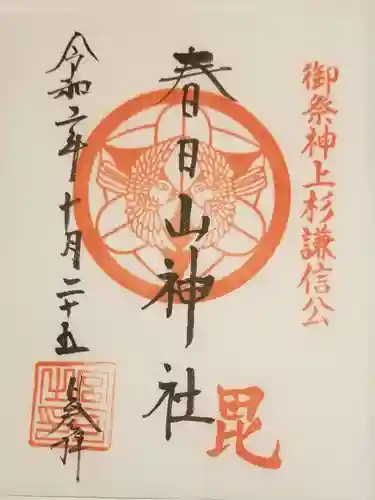 御祭神上杉謙信公
春日山神社
毘
令和二年十月二十五
日奉拝